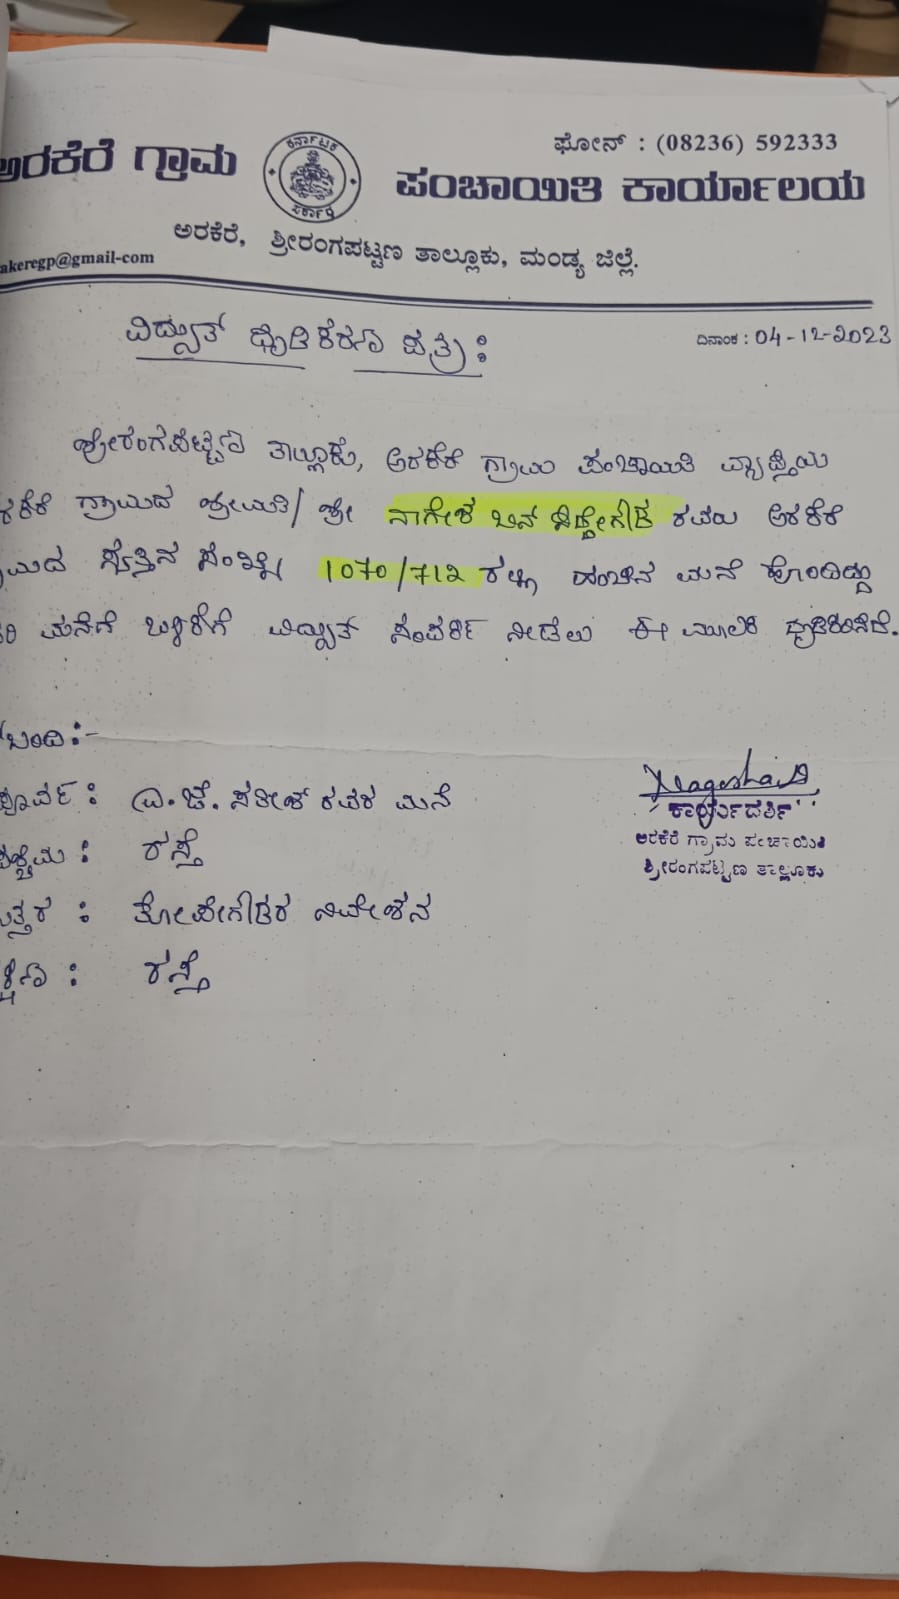 ಅರಕೆರೆ ಗ್ರಾಮ ಪಂಚಾಯಿತಿ ಕಾರ್ಯಾಲಯ
ಕರ್ನಾಟಕ ಸರ್ಕಾರ
ಫೋನ್ : (08236) 592333
ಅರಕೆರೆ, ಶ್ರೀರಂಗಪಟ್ಟಣ ತಾಲ್ಲೂಕು, ಮಂಡ್ಯ ಜಿಲ್ಲೆ.
akeregp@gmail-com
ವಿದ್ಯುತ್ ದೃಢೀಕರಣ ಪತ್ರ :
ದಿನಾಂಕ : 04-12-2023
ಶ್ರೀರಂಗಪಟ್ಟಣ ತಾಲ್ಲೂಕು, ಅರಕೆರೆ ಗ್ರಾಮ ಪಂಚಾಯಿತಿ ವ್ಯಾಪ್ತಿಯ
ರಕೆರೆ ಗ್ರಾಮದ ಶ್ರೀಮತಿ/ ಶ್ರೀ ನಾಗೇಶ ಬಿನ್ ಸಿದ್ದೇಗೌಡ ರವರು ಅರಕೆರೆ
ಮದ ಸ್ವತ್ತಿನ ಸಂಖ್ಯೆ 1070/712 ರಲ್ಲಿ ಹಂಚಿನ ಮನೆ ಹೊಂದಿದ್ದು
ರಿ ಮನೆಗೆ ಬಳಕೆಗೆ ವಿದ್ಯುತ್ ಸಂಪರ್ಕ ನೀಡಲು ಈ ಮೂಲಕ ದೃಢೀಕರಿಸಿದೆ.
ಬಂದಿ :-
ಪೂರ್ವ : ಎ.ಜೆ. ಸತೀಶ್ ರವರ ಮನೆ
ಪಶ್ಚಿಮ : ರಸ್ತೆ
ತ್ತರ : ತೋಪೇಗೌಡರ ನಿವೇಶನ
ಕ್ಷಿಣ : ರಸ್ತೆ
Nagesha
ಕಾರ್ಯದರ್ಶಿ
ಅರಕೆರೆ ಗ್ರಾಮ ಪಂಚಾಯಿತಿ
ಶ್ರೀರಂಗಪಟ್ಟಣ ತಾಲ್ಲೂಕು